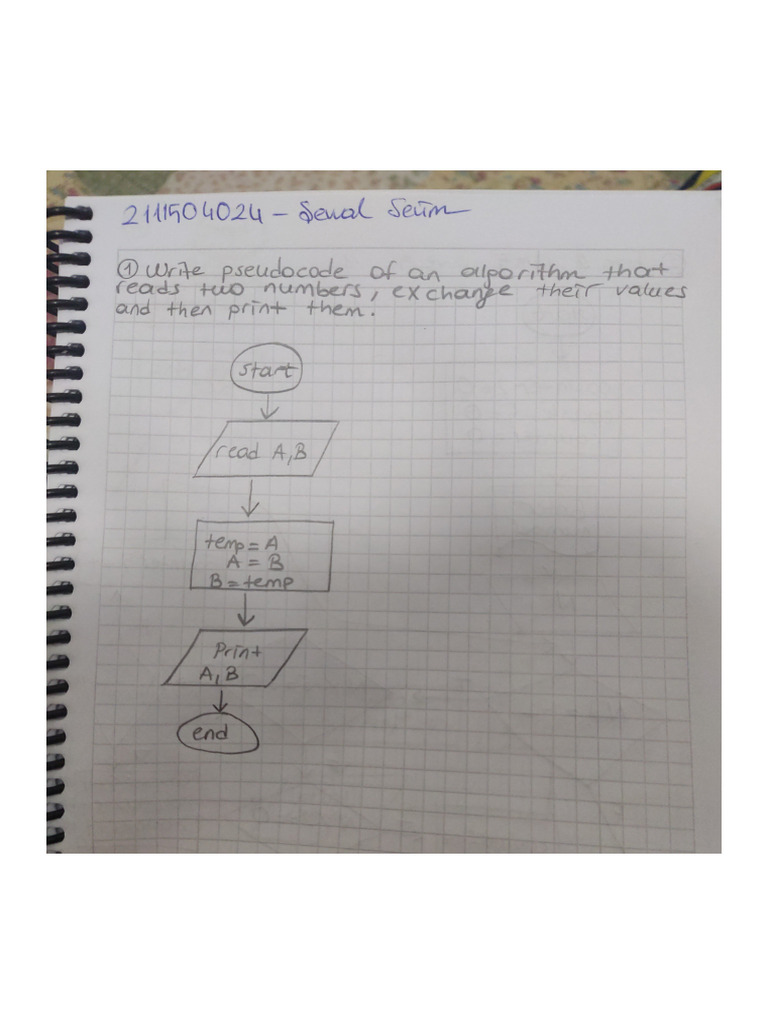 2111504024 - Senal
① Write pseudocode of an algorithm that
reads two numbers, exchange their values
and then print them.
start
read A,B
temp = A
A = B
B = temp
Print
A, B
end